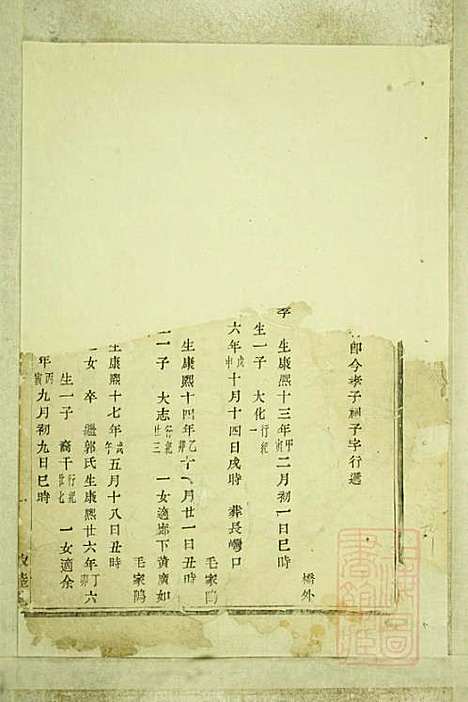 即今孝子祠子字行選
橋外
生康熙十三年甲寅二月初一日巳時
生一子 大化行紀
六年戊申十月十四日戌時 葬長灣口
毛家鴨
生康熙十四年乙卯十一月廿一日丑時
一子 大志行紀廿三 一女適廊下黃廣如
毛家鴨
生康熙十七年戊午五月十八日丑時
女 卒 繼郭氏生康熙廿六年丁卯六
生一子 裔干行紀廿七 一女適余
年丙寅九月初九日巳時